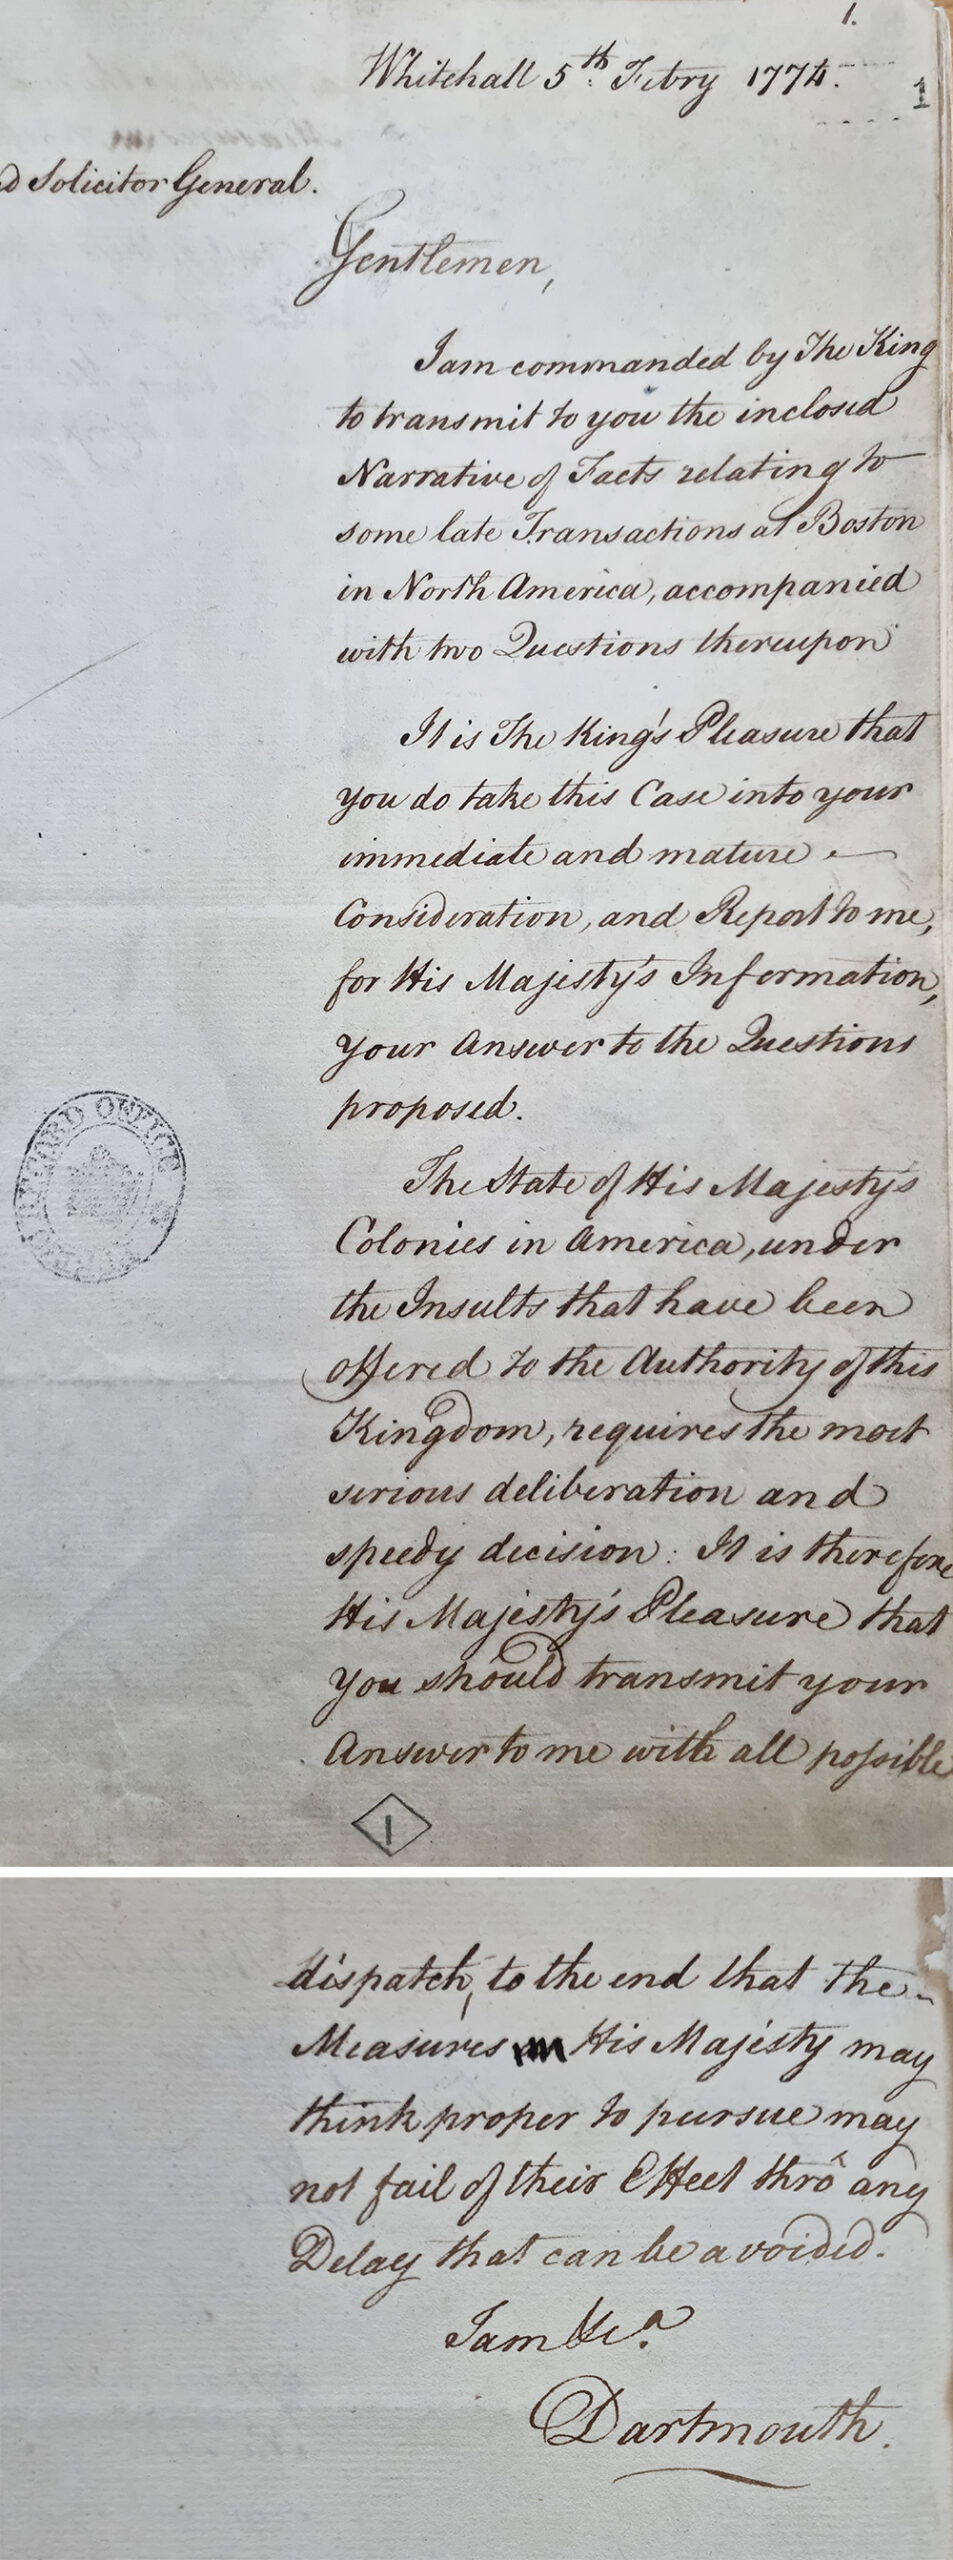 1.
Whitehall 5th: Febry 1774.
1
d Solicitor General.
Gentlemen,
I am commanded by The King
to transmit to you the inclosed
Narrative of Facts relating to
some late Transactions at Boston
in North America, accompanied
with two Questions thereupon
It is The King's Pleasure that
you do take this Case into your
immediate and mature
Consideration, and Report to me,
for His Majesty's Information,
your Answer to the Questions
proposed.
RECORD OFFICE
The State of His Majesty's
Colonies in America, under
the Insults that have been
offered to the Authority of this
Kingdom, requires the most
serious deliberation and
speedy decision: It is therefore
His Majesty's Pleasure that
you should transmit your
Answer to me with all possible
1
dispatch, to the end that the
Measures His Majesty may
think proper to pursue may
not fail of their Effect thrô any
Delay that can be avoided.
I am &ca
Dartmouth.